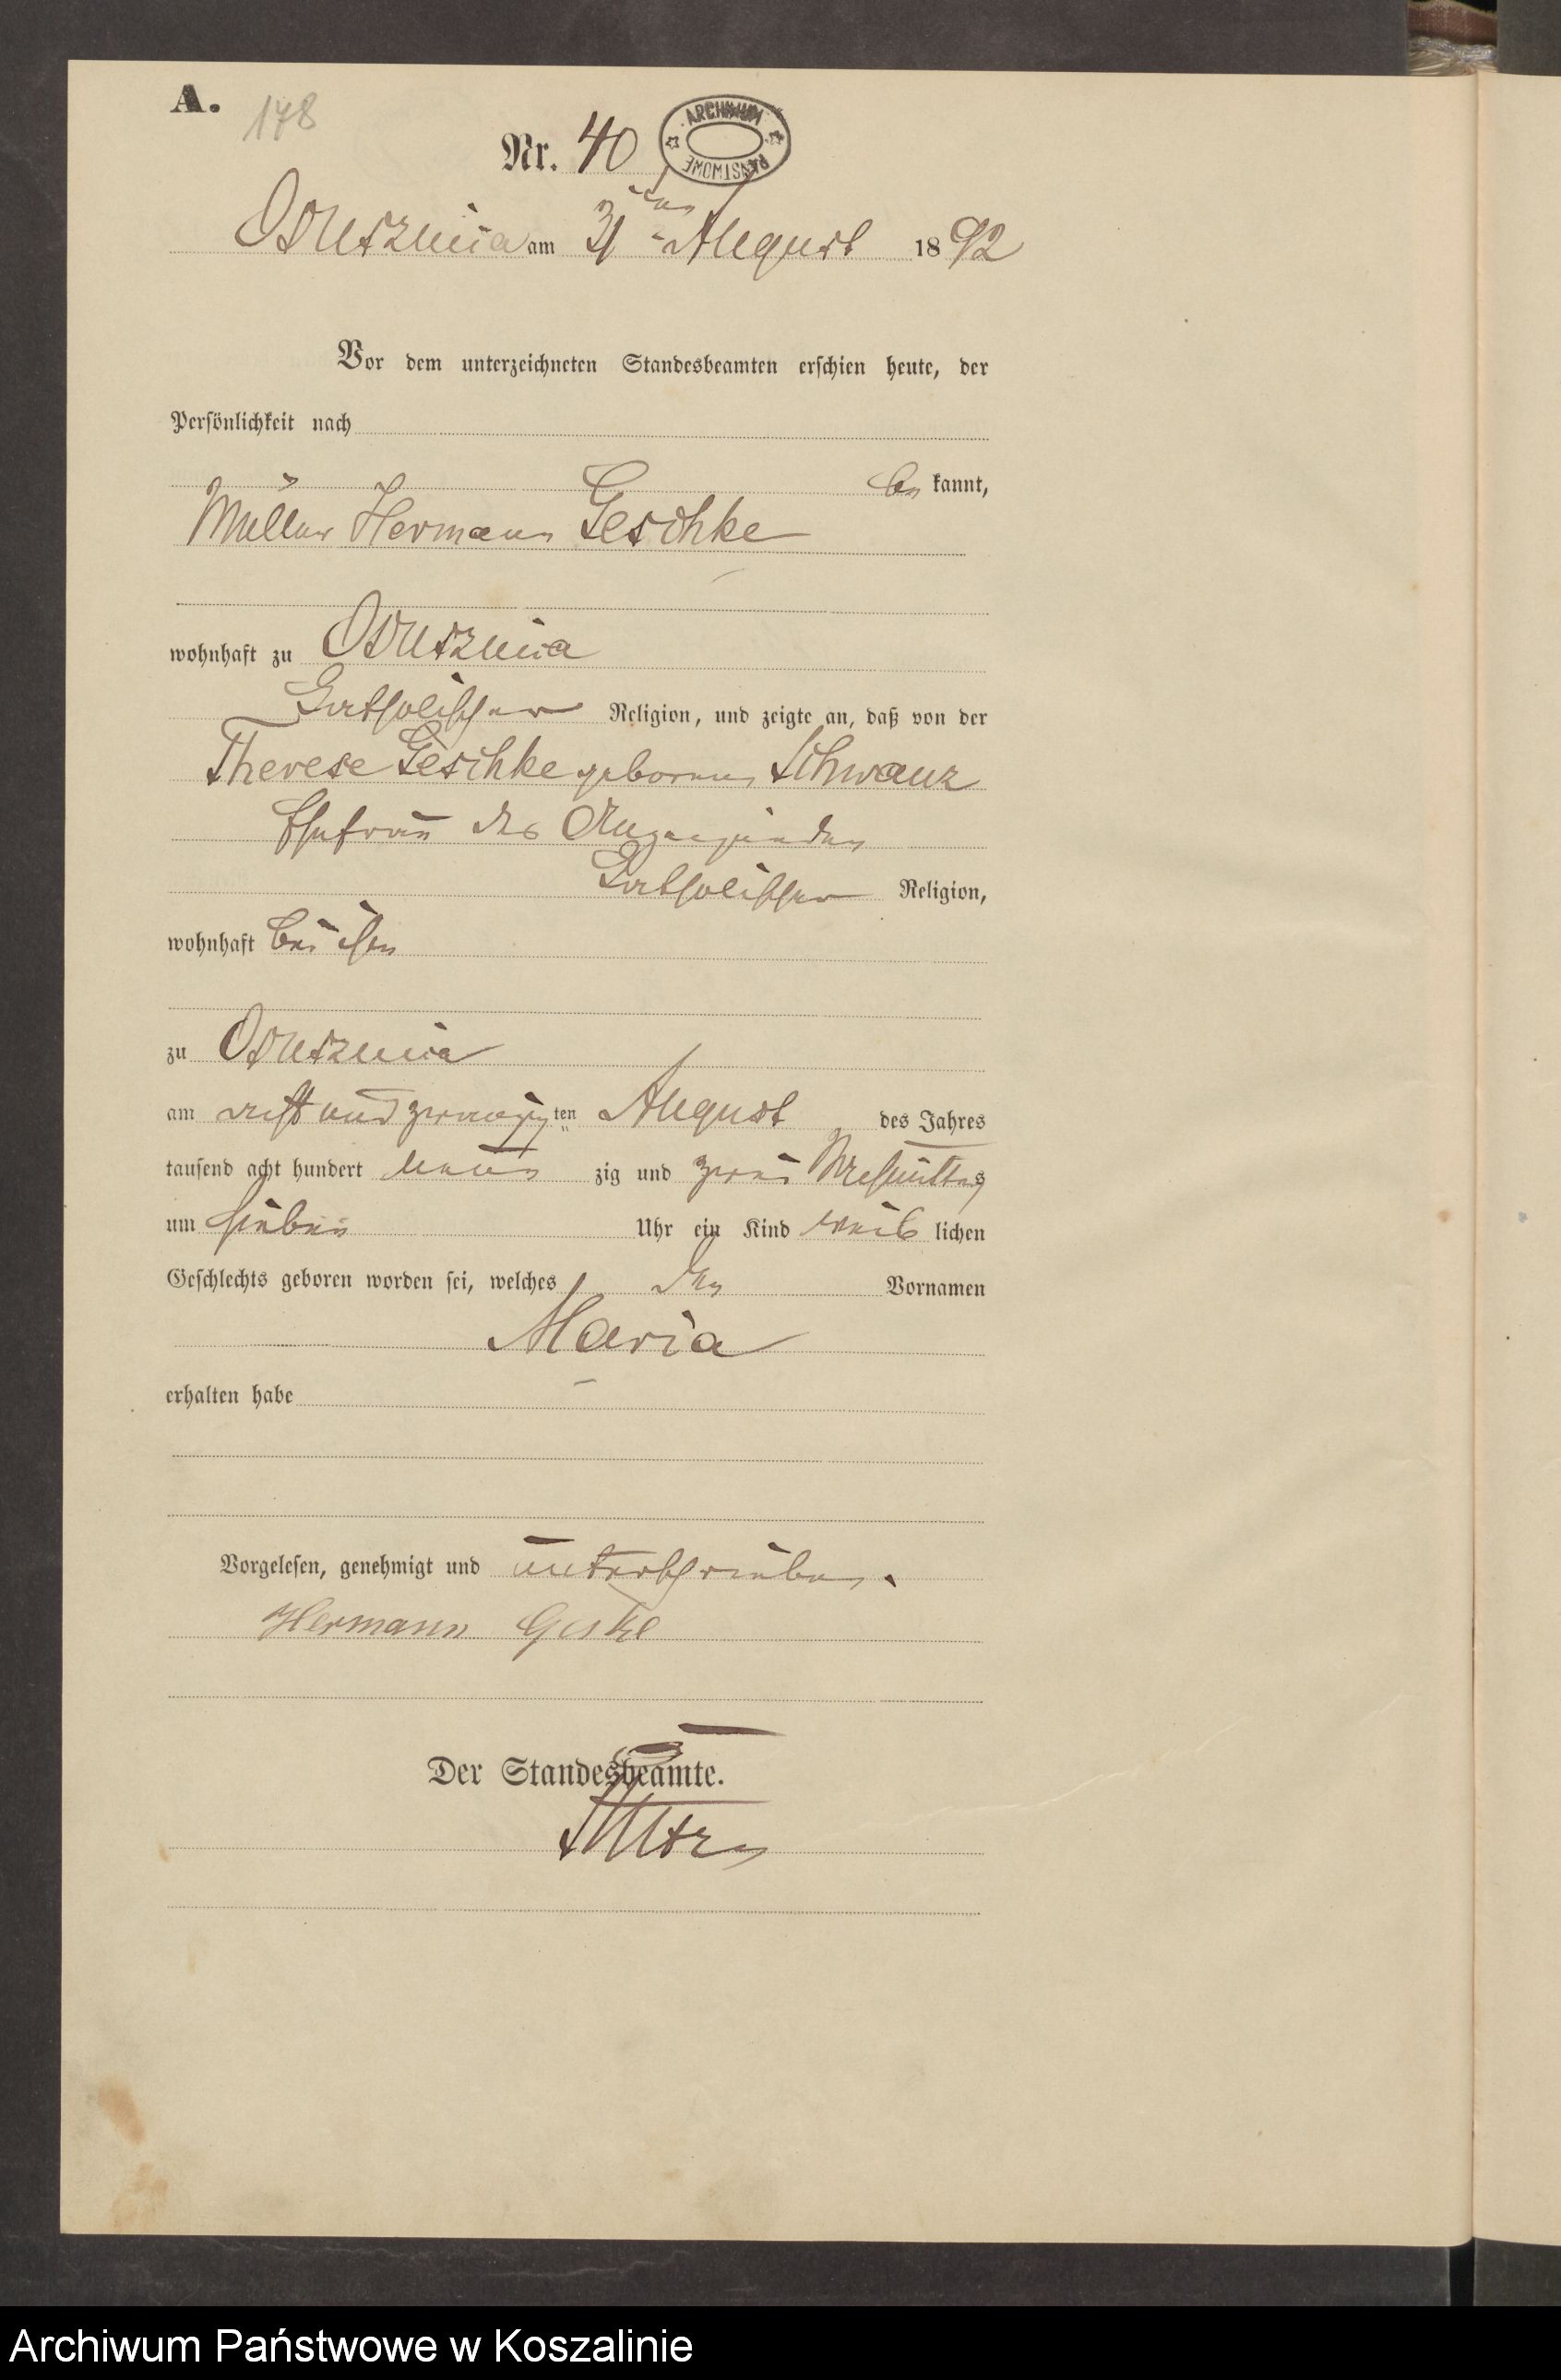 A. 178
Nr. 40
ARCHIWUM PAŃSTWOWE
Ossusznica am 31ten August 1892
Vor dem unterzeichneten Standesbeamten erschien heute, der
Persönlichkeit nach
be kannt,
Müller Hermann Geschke
wohnhaft zu Ossusznica
Katholischer Religion, und zeigte an, daß von der
Therese Geschke geborenen Schwanz
Ehefrau des Anzeigenden
Katholischer Religion,
wohnhaft bei ihm
zu Ossusznica
am acht und zwanzigten August des Jahres
tausend acht hundert neun zig und zwei Nachmittags
um sieben Uhr ein Kind weib lichen
Geschlechts geboren worden sei, welches den Vornamen
Maria
erhalten habe
Vorgelesen, genehmigt und unterschrieben.
Hermann Geske
Der Standesbeamte.
Archiwum Państwowe w Koszalinie